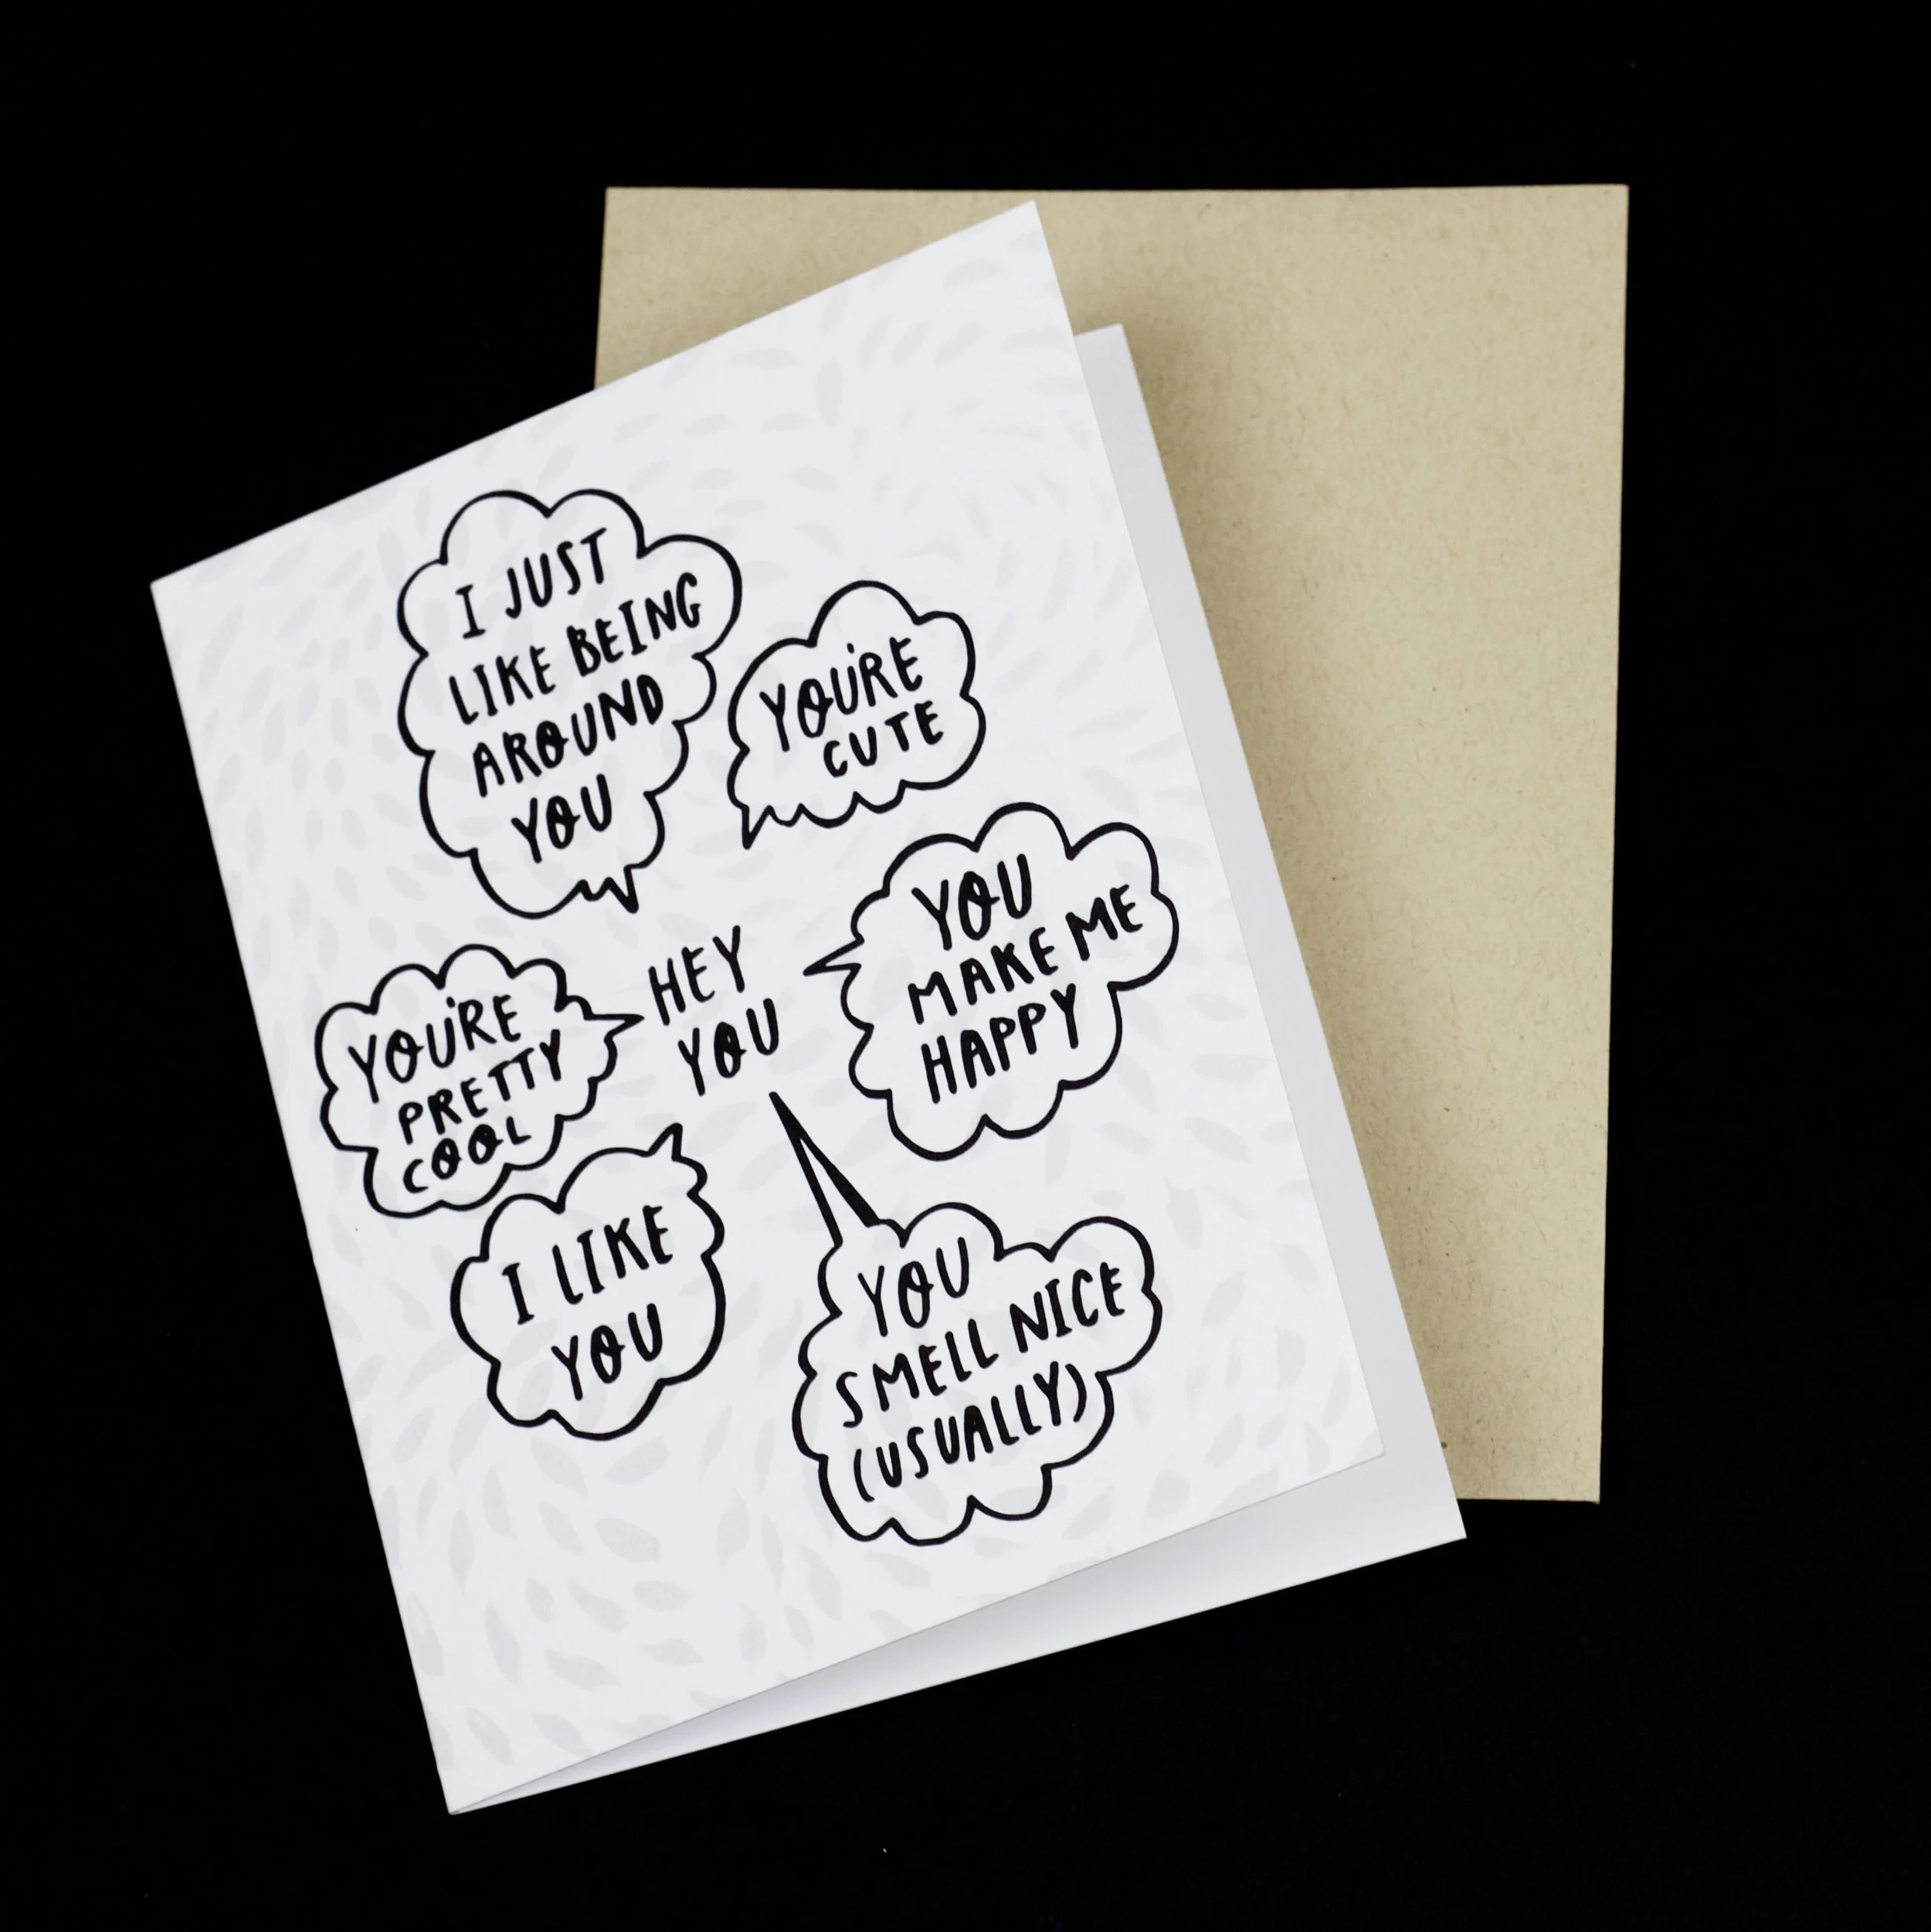 I JUST
LIKE BEING
AROUND
YOU
YOU'RE
CUTE
YOU
MAKE ME
HAPPY
HEY
YOU
YOU'RE
PRETTY
COOL
I LIKE
YOU
YOU
SMELL NICE
(USUALLY)